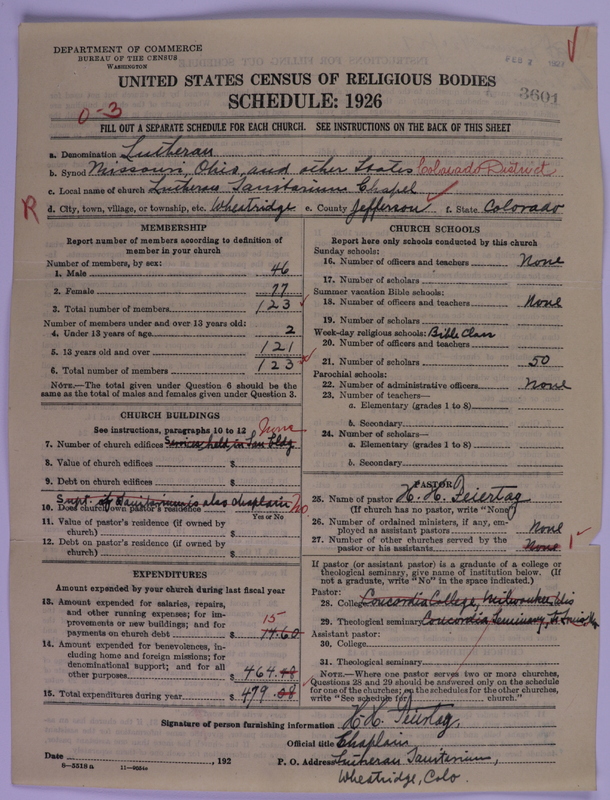 DEPARTMENT OF COMMERCE
BUREAU OF THE CENSUS
WASHINGTON
FEB 2 1927
3601
UNITED STATES CENSUS OF RELIGIOUS BODIES
SCHEDULE: 1926
0-3
FILL OUT A SEPARATE SCHEDULE FOR EACH CHURCH. SEE INSTRUCTIONS ON THE BACK OF THIS SHEET
a. Denomination Lutheran
b. Synod Missouri, Ohio, and other States Colorado District
c. Local name of church Lutheran Sanitarium Chapel
R d. City, town, village, or township, etc. Wheatridge e. County Jefferson f. State Colorado
MEMBERSHIP
Report number of members according to definition of
member in your church
Number of members, by sex:
1. Male 46
2. Female 77
3. Total number of members 123
Number of members under and over 13 years old:
4. Under 13 years of age 2
5. 13 years old and over 121
6. Total number of members 123
NOTE.—The total given under Question 6 should be the
same as the total of males and females given under Question 3.
CHURCH BUILDINGS
See instructions, paragraphs 10 to 12
7. Number of church edifices Services held in San bldg
8. Value of church edifices $
9. Debt on church edifices $
Supt. of Sanitarium is also chaplain No
10. Does church own pastor's residence
Yes or No
11. Value of pastor's residence (if owned by
church) $
12. Debt on pastor's residence (if owned by
church) $
EXPENDITURES
Amount expended by your church during last fiscal year
13. Amount expended for salaries, repairs,
and other running expenses; for im-
provements or new buildings; and for
payments on church debt $ 15 14.60
14. Amount expended for benevolences, in-
cluding home and foreign missions; for
denominational support; and for all
other purposes $ 464.48
15. Total expenditures during year $ 479.08
CHURCH SCHOOLS
Report here only schools conducted by this church
Sunday schools:
16. Number of officers and teachers None
17. Number of scholars
Summer vacation Bible schools:
18. Number of officers and teachers None
19. Number of scholars
Week-day religious schools: Bible Class
20. Number of officers and teachers
21. Number of scholars 50
Parochial schools:
22. Number of administrative officers None
23. Number of teachers—
a. Elementary (grades 1 to 8)
b. Secondary
24. Number of scholars—
a. Elementary (grades 1 to 8)
b. Secondary
PASTOR
25. Name of pastor H. H. Feiertag
(If church has no pastor, write "None")
26. Number of ordained ministers, if any, em-
ployed as assistant pastors None
27. Number of other churches served by the
pastor or his assistants None 1
If pastor (or assistant pastor) is a graduate of a college or
theological seminary, give name of institution below. (If
not a graduate, write "No" in the space indicated.)
Pastor:
28. College Concordia College, Milwaukee, Wis
29. Theological seminary Concordia Seminary, St Louis Mo.
Assistant pastor:
30. College
31. Theological seminary
NOTE.—Where one pastor serves two or more churches,
Questions 28 and 29 should be answered only on the schedule
for one of the churches; on the schedules for the other churches,
write "See schedule for church."
Signature of person furnishing information H. H. Feiertag,
Official title Chaplain
Date , 192
P. O. Address Lutheran Sanitarium,
Wheatridge, Colo.
8—5318a